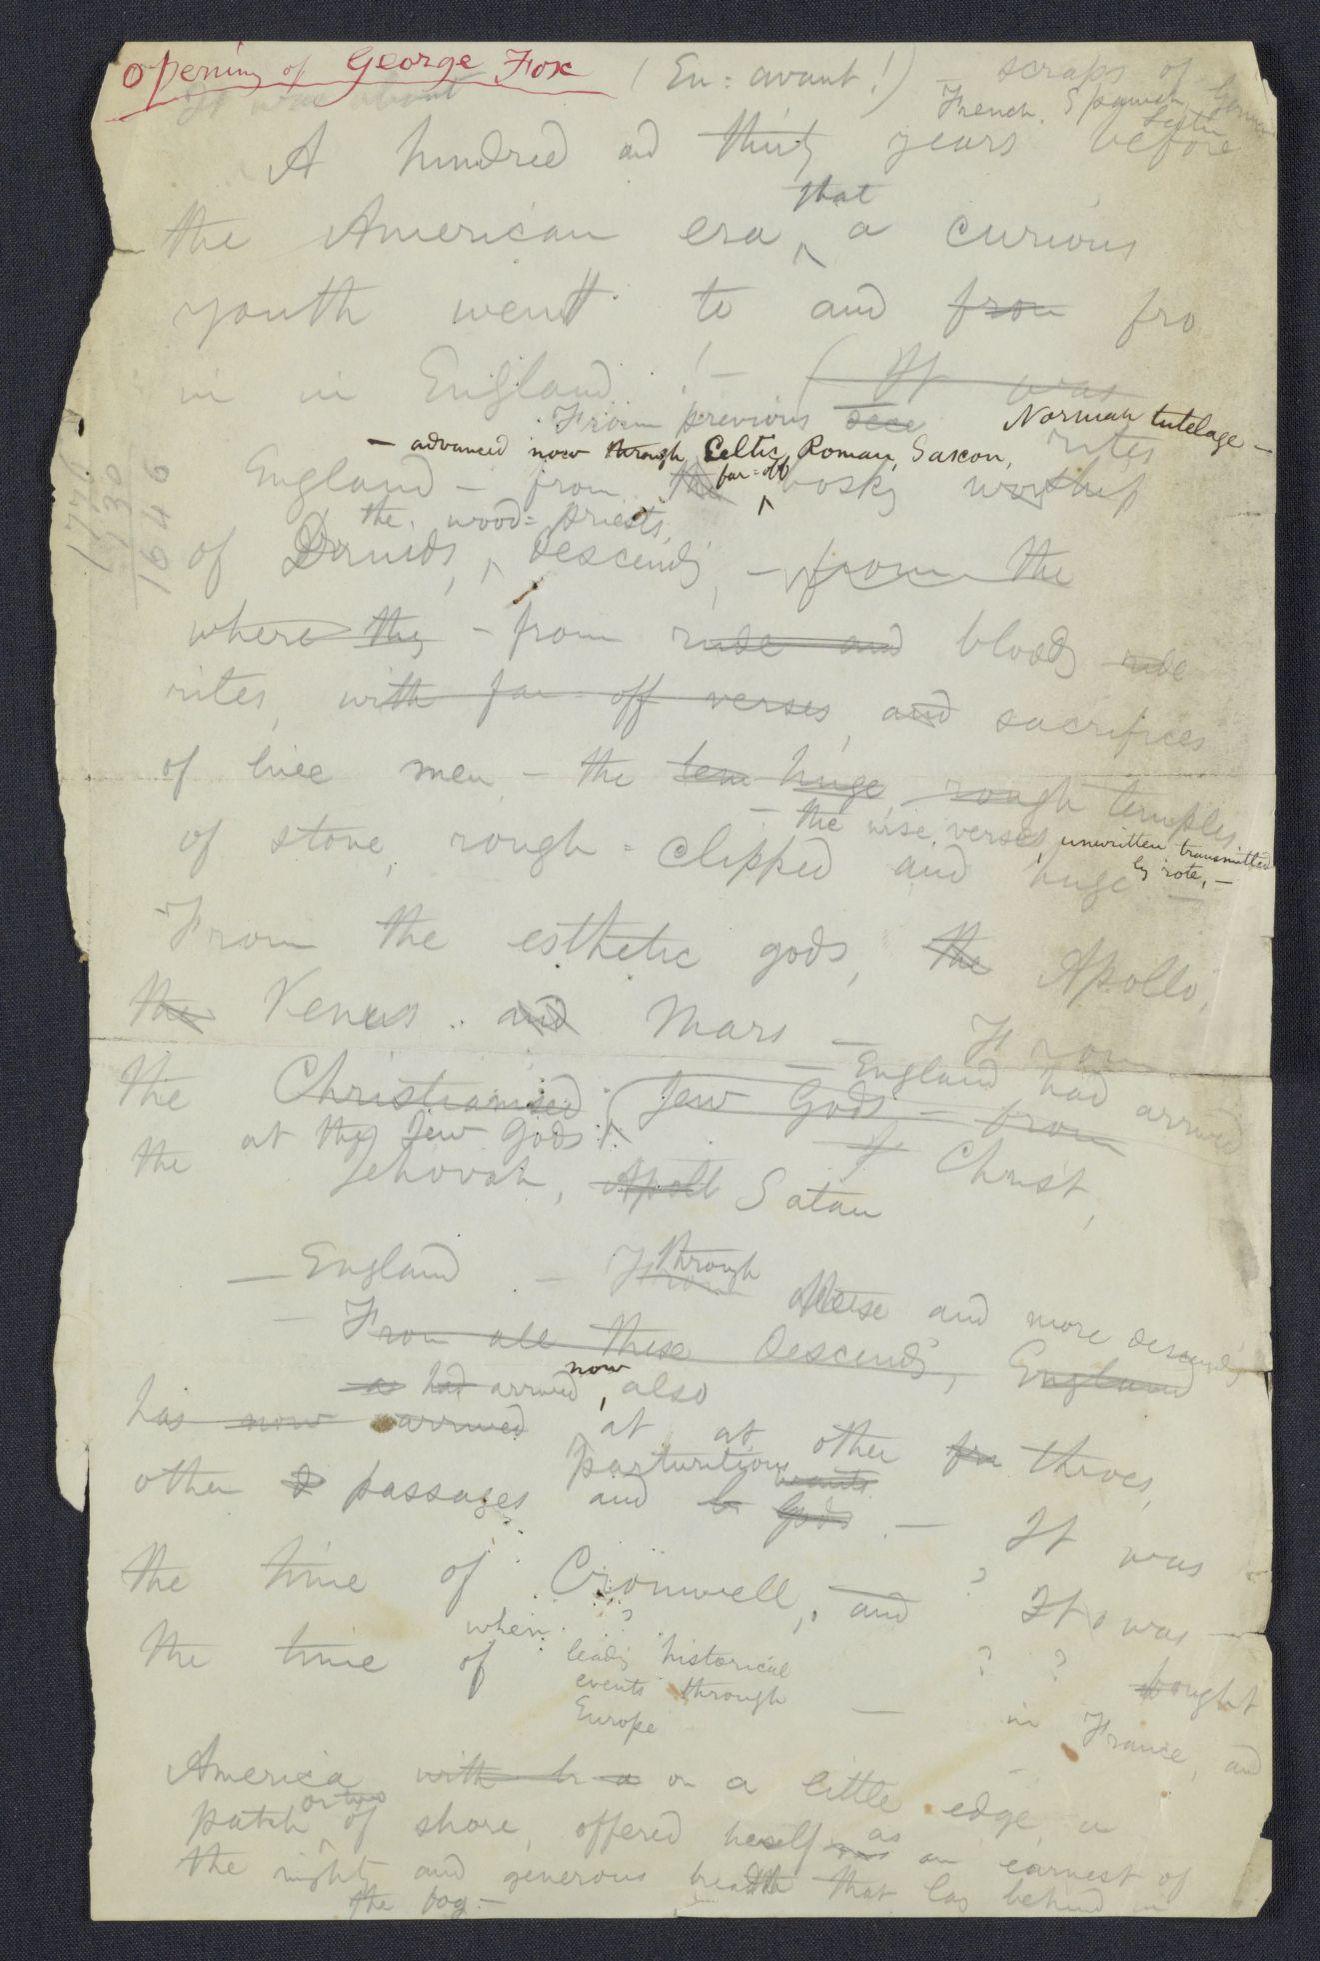 Opening of George Fox (En=avant!) — scraps of
French, Spanish, German
Latin
It was about
A hundred and thirty years before
that
the American era, a curious
youth went to and from fro
in in England ! — (It was
From previous
Norman tutelage —
— advanced now through Celtic, Roman, Saxon,
rites
far=off
England — from the bosky worship
the wood=priests,
of Druids, descends, — from the
where they — from rude and bloody rude
rites, with far=off verses, and sacrifices
of live men — the tem huge, rough temples
— the wise verses, unwritten transmitted
by rote, —
of stone, rough=clipped and huge —
From the esthetic gods, the Apollo,
the Venus and Mars — From
— England had arrived
the Christianised (Jew Gods — from
at the Jew Gods
the Jehovah, Apoll Satan of Christ,
through
— England — From these and more descends
— From all these descends, England
as had arrived now, also
has now arrived at at other thros,
parturitions
wants
other passages and Gods. — It was
the time of Cromwell, and ? It was —
when ?
the time of leading historical ? ? bought
events through
Europe
— in France, and
America with on a little edge, a
or two
patch of shore, offered herself as an earnest of
the mighty and generous breadth that lay behind in
the bog —
1776
130
1646